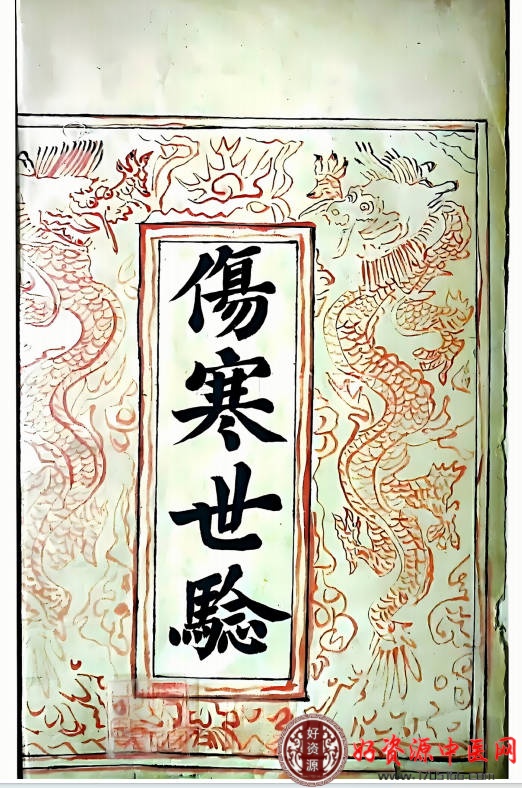 傷寒世騐
好资源
好资源中医网